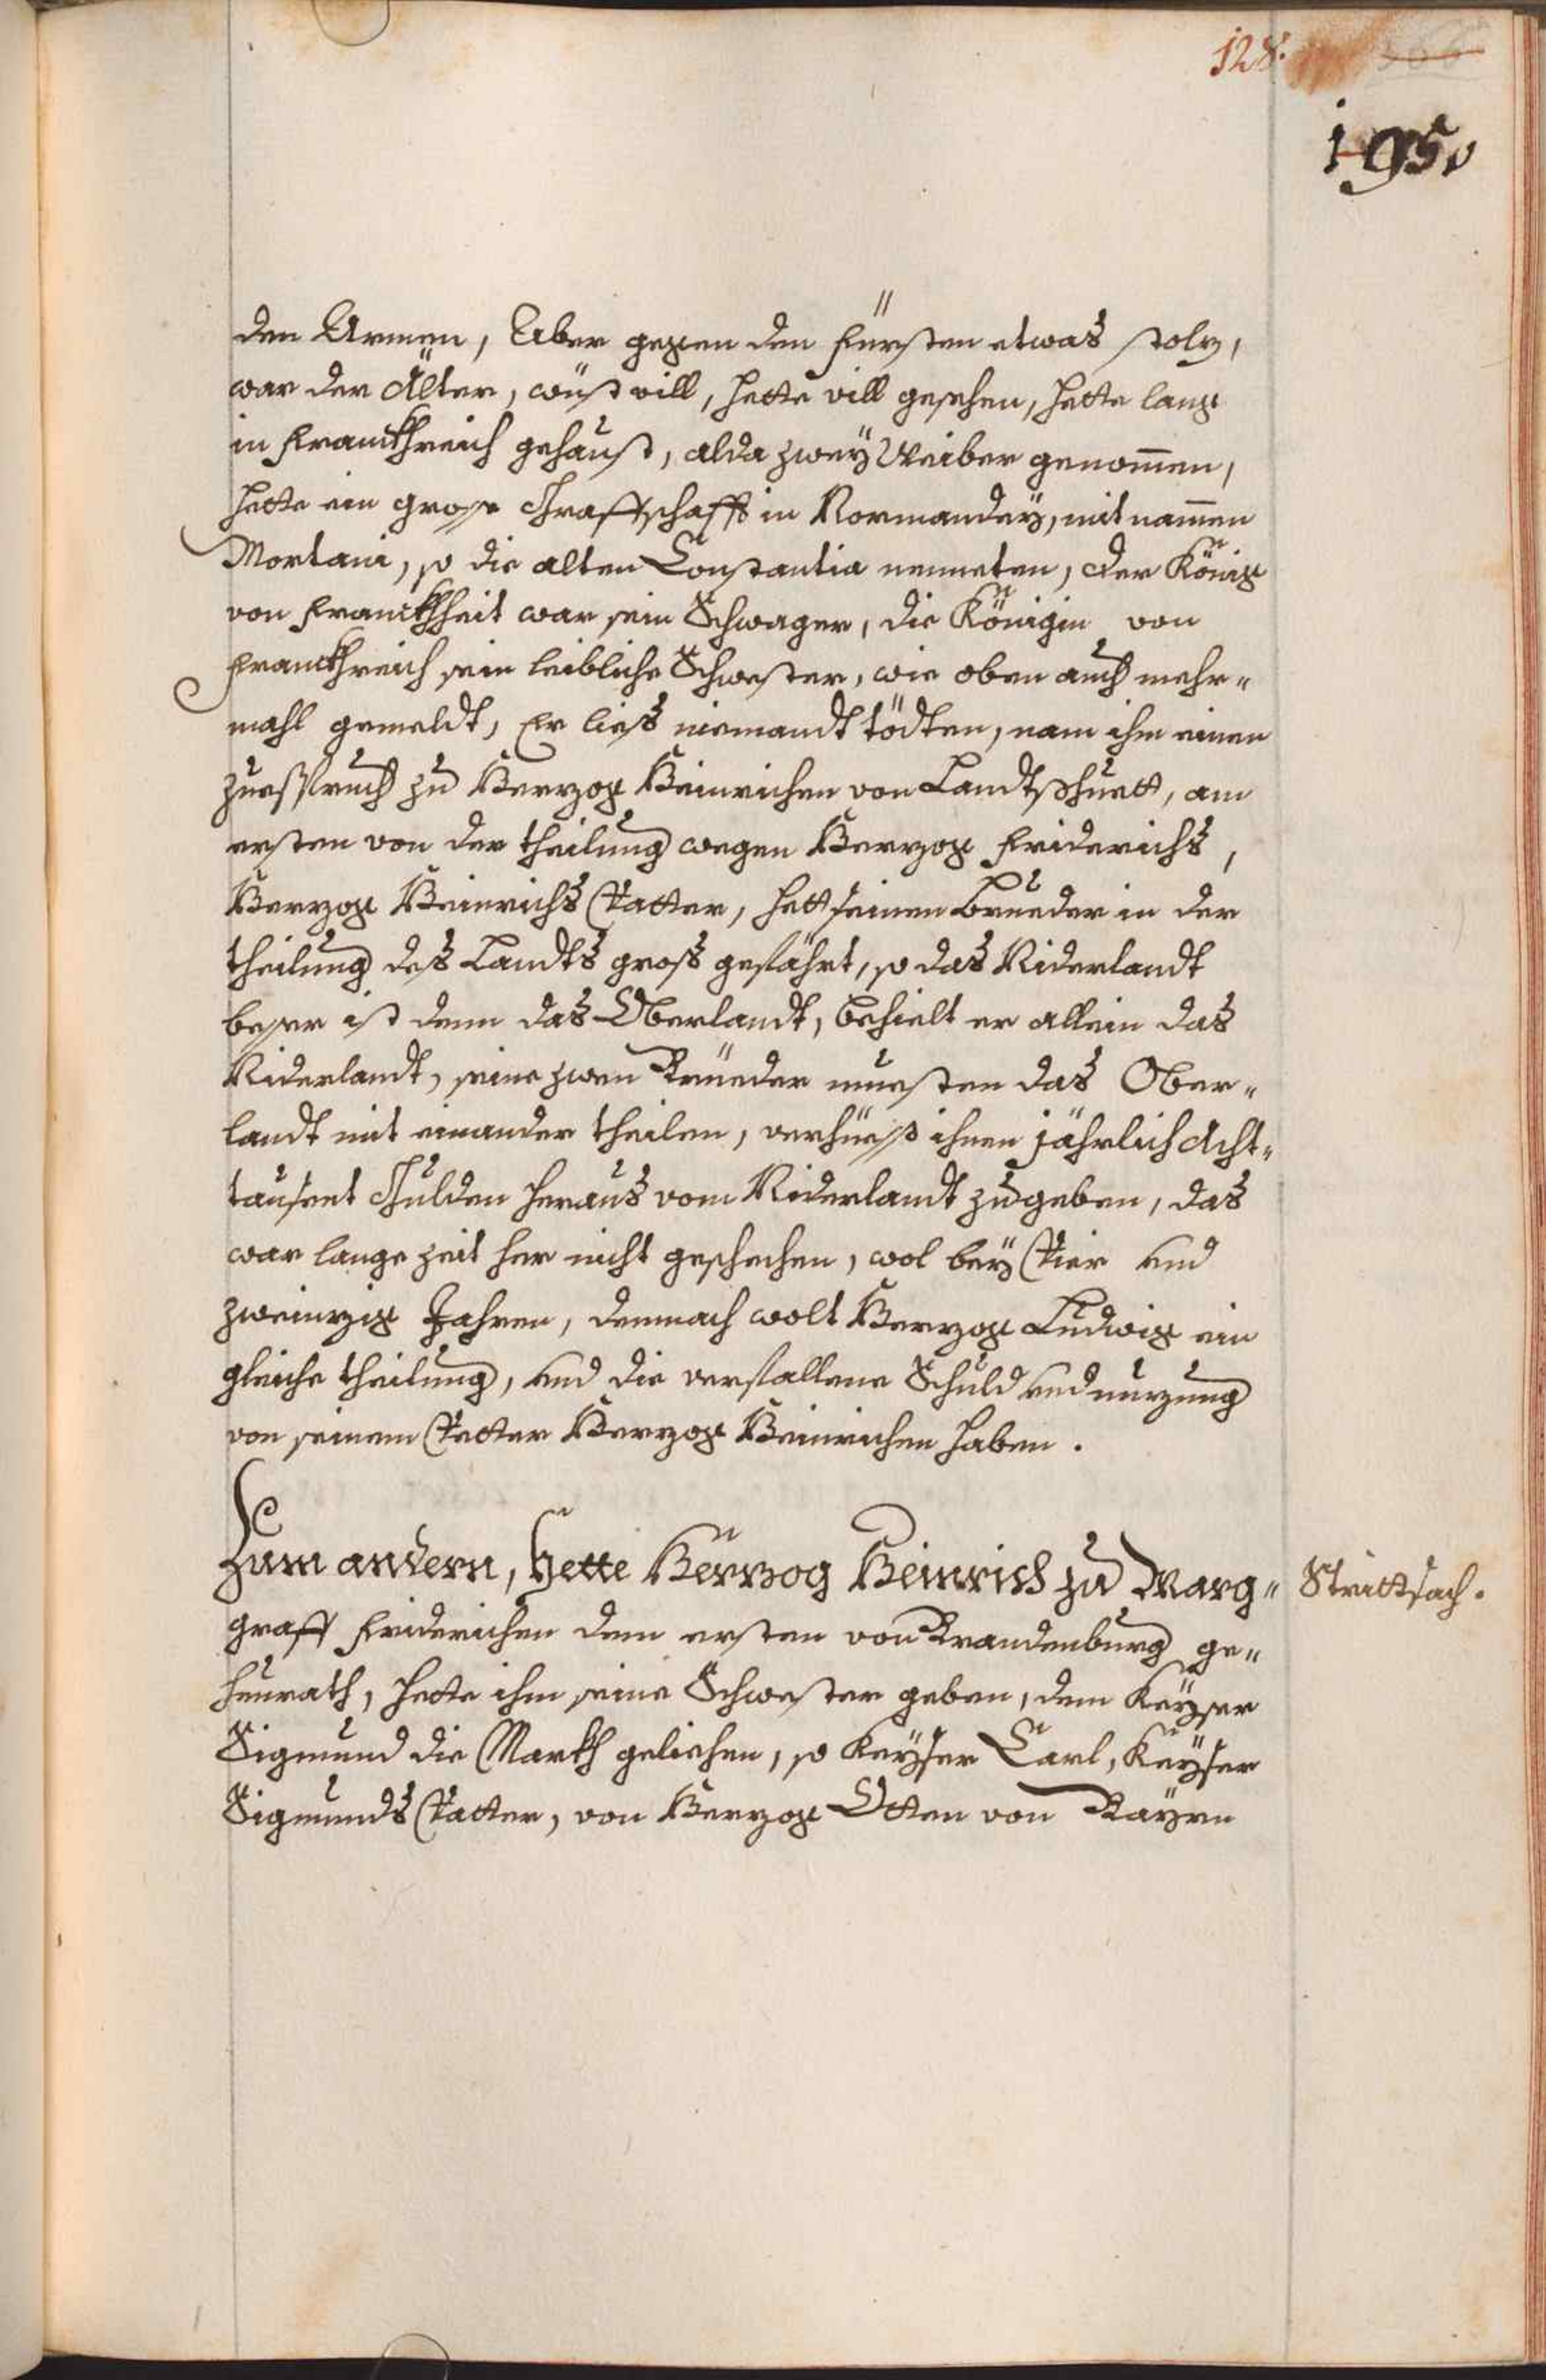 128.
195.
den Armen, Aber gegen den Fürsten etwas stolz,
war der Älter, wust vill, hette vill gesehen, hette lang
in Franckhreich gehaust, alda zwey Weiber genommen,
hette ein grosse Graffschafft in Normandey, mit nammen
Mortani, so die alten Constantia nenneten, der König
von Franckhheit war sein Schwager, die Königin von
Franckhreich sein leibliche Schwester, wie oben auch mehr„
mahl gemeldt, Er lies niemandt tödten, nam ihm einen
zuespruch zu Herzog Heinrichen von Landtshuett, am
ersten von der theilung wegen Herzog Friderichs,
Herzog Heinrichs Vatter, hett seinen brueder in der
theilung des Landts gros gefährt, so das Niderlandt
besser ist denn das Oberlandt, behielt er allein das
Niderlandt, seine zwen Brüeder muesten das Ober„
landt mit einander theilen, verhüess ihnen jährlich Acht„
tausent Gulden heraus vom Niderlandt zugeben, das
war lange zeit her nicht geschechen, wol bey Vier und
zweinzig Jahren, demnach wolt Herzog Ludwig ein
gleiche theilung, und die verfallene Schuld und nutzung
von seinem Vetter Herzog Heinrichen haben.
Zum andern, hette Herzog Heinrich zu Marg„
Strittsach.
graff Friderichen dem ersten von Brandenburg ge„
heurath, hette ihm seine Schwester geben, dem Keyser
Sigmund die Markh geliehen, so Keyser Carl, Keyser
Sigmunds Vatter, von Herzog Otten von Bayrn